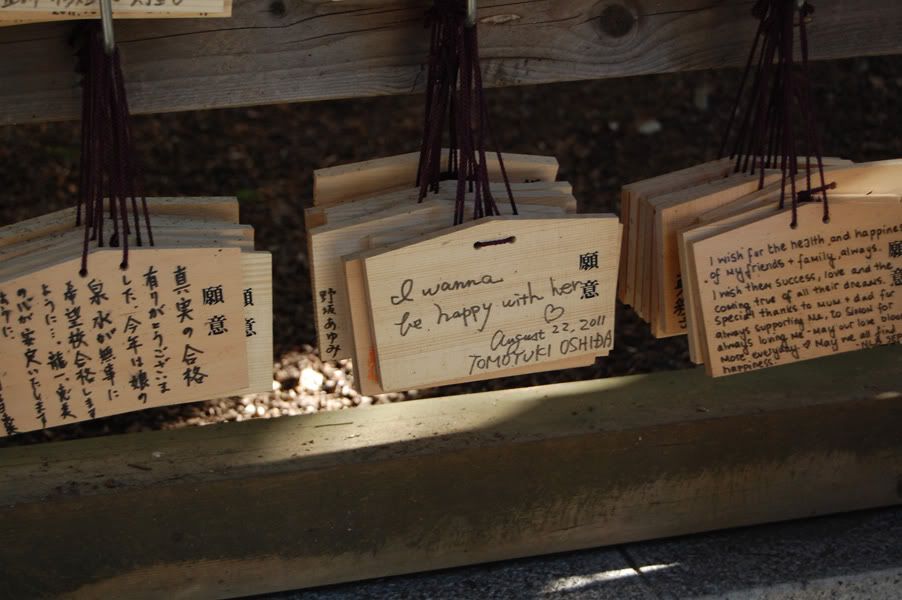 願意
真実の合格
有りがとうございま
した。今年は娘の
泉水が無事に
希望校合格します
ように。
ように
願意
野坂あゆみ
願意
I wanna
be happy with her
♡
August 22, 2011
TOMOYUKI OSHIDA
願意
I wish for the health and happine
of my friends + family, always.
I wish them success, love and the
coming true of all their dreams.
Special thanks to mum + dad for
always supporting me, to Simon for
always loving me. May our love bloom
more everyday ♡ May we all find
happiness.